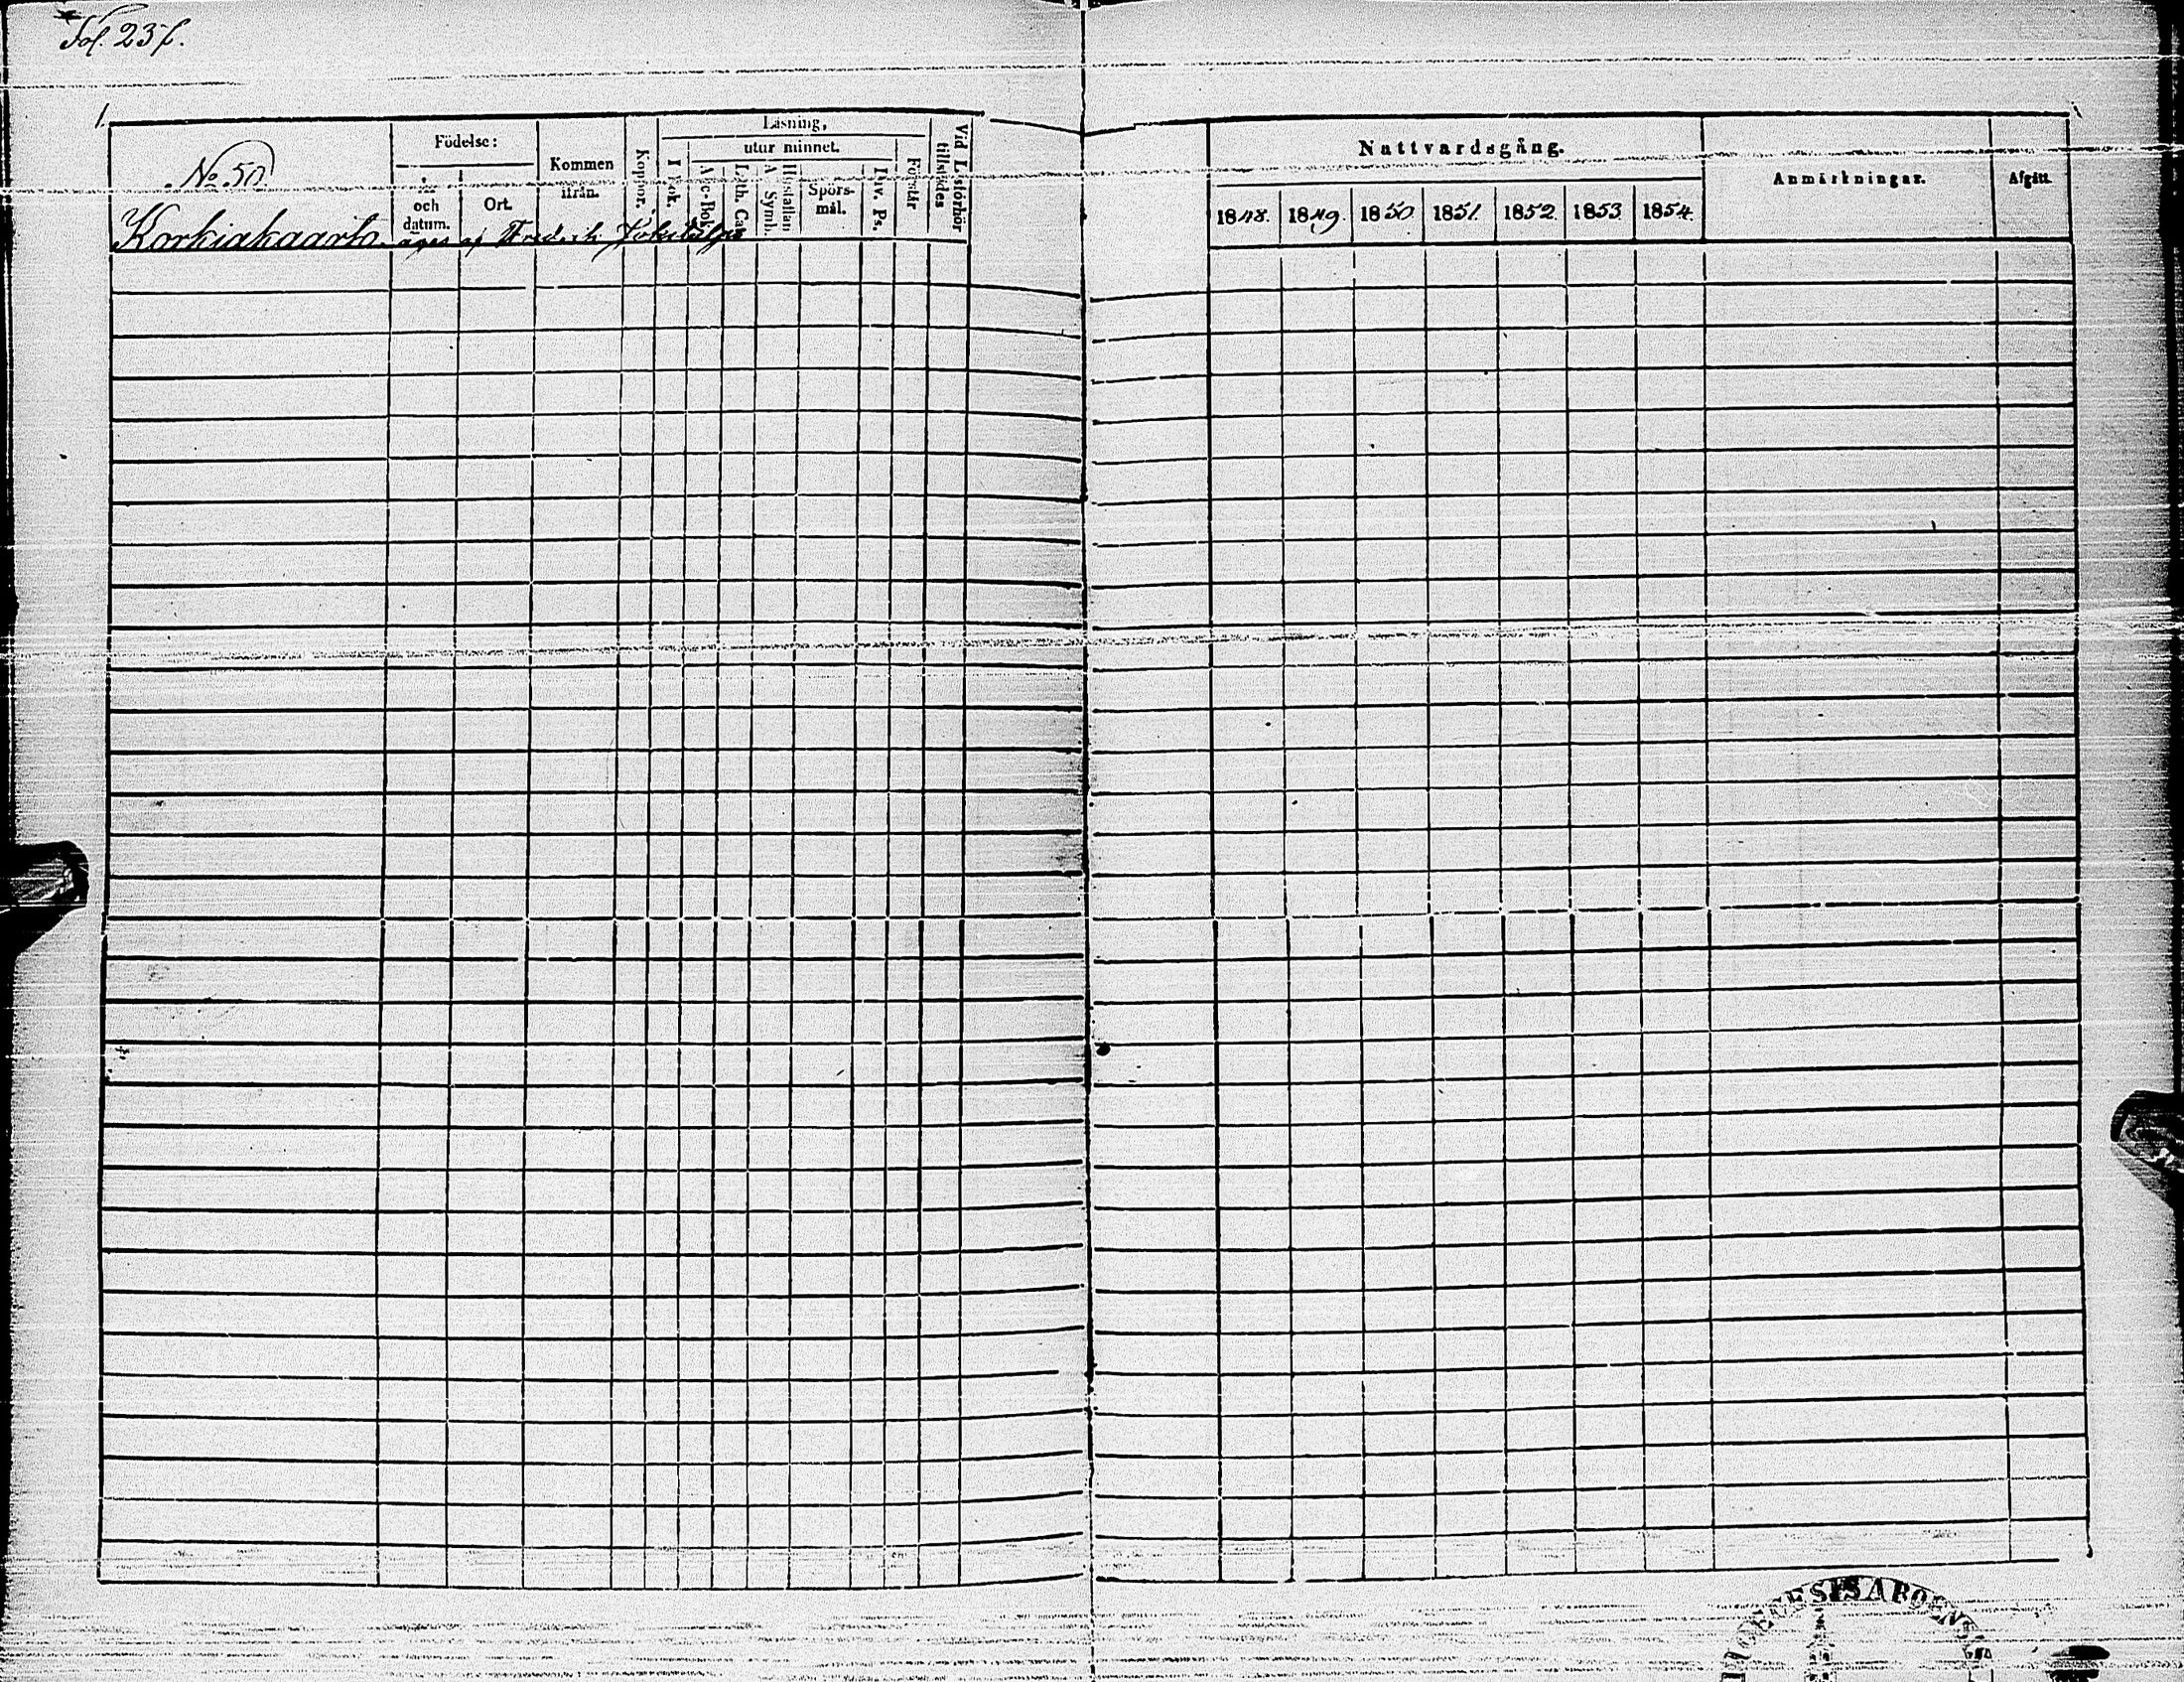 Fol. 237.
No 50.
Korkiakaarto. äges af Fredrik Jokitalo
Födelse:
och datum.
Ort.
Kommen ifrån.
Koppor.
Läsning,
utur minnet.
I Bok.
A-b-c-Bok.
Luth. Cat.
A. Symb.
Hustaflan
Spörs-mål.
Dav. Ps.
Förstår
Vid Läsförhör tillstädes
Nattvardsgång.
1848. 1849. 1850. 1851. 1852. 1853. 1854.
Anmärkningar.
Afgått.
DIOECESIS ABOENSIS